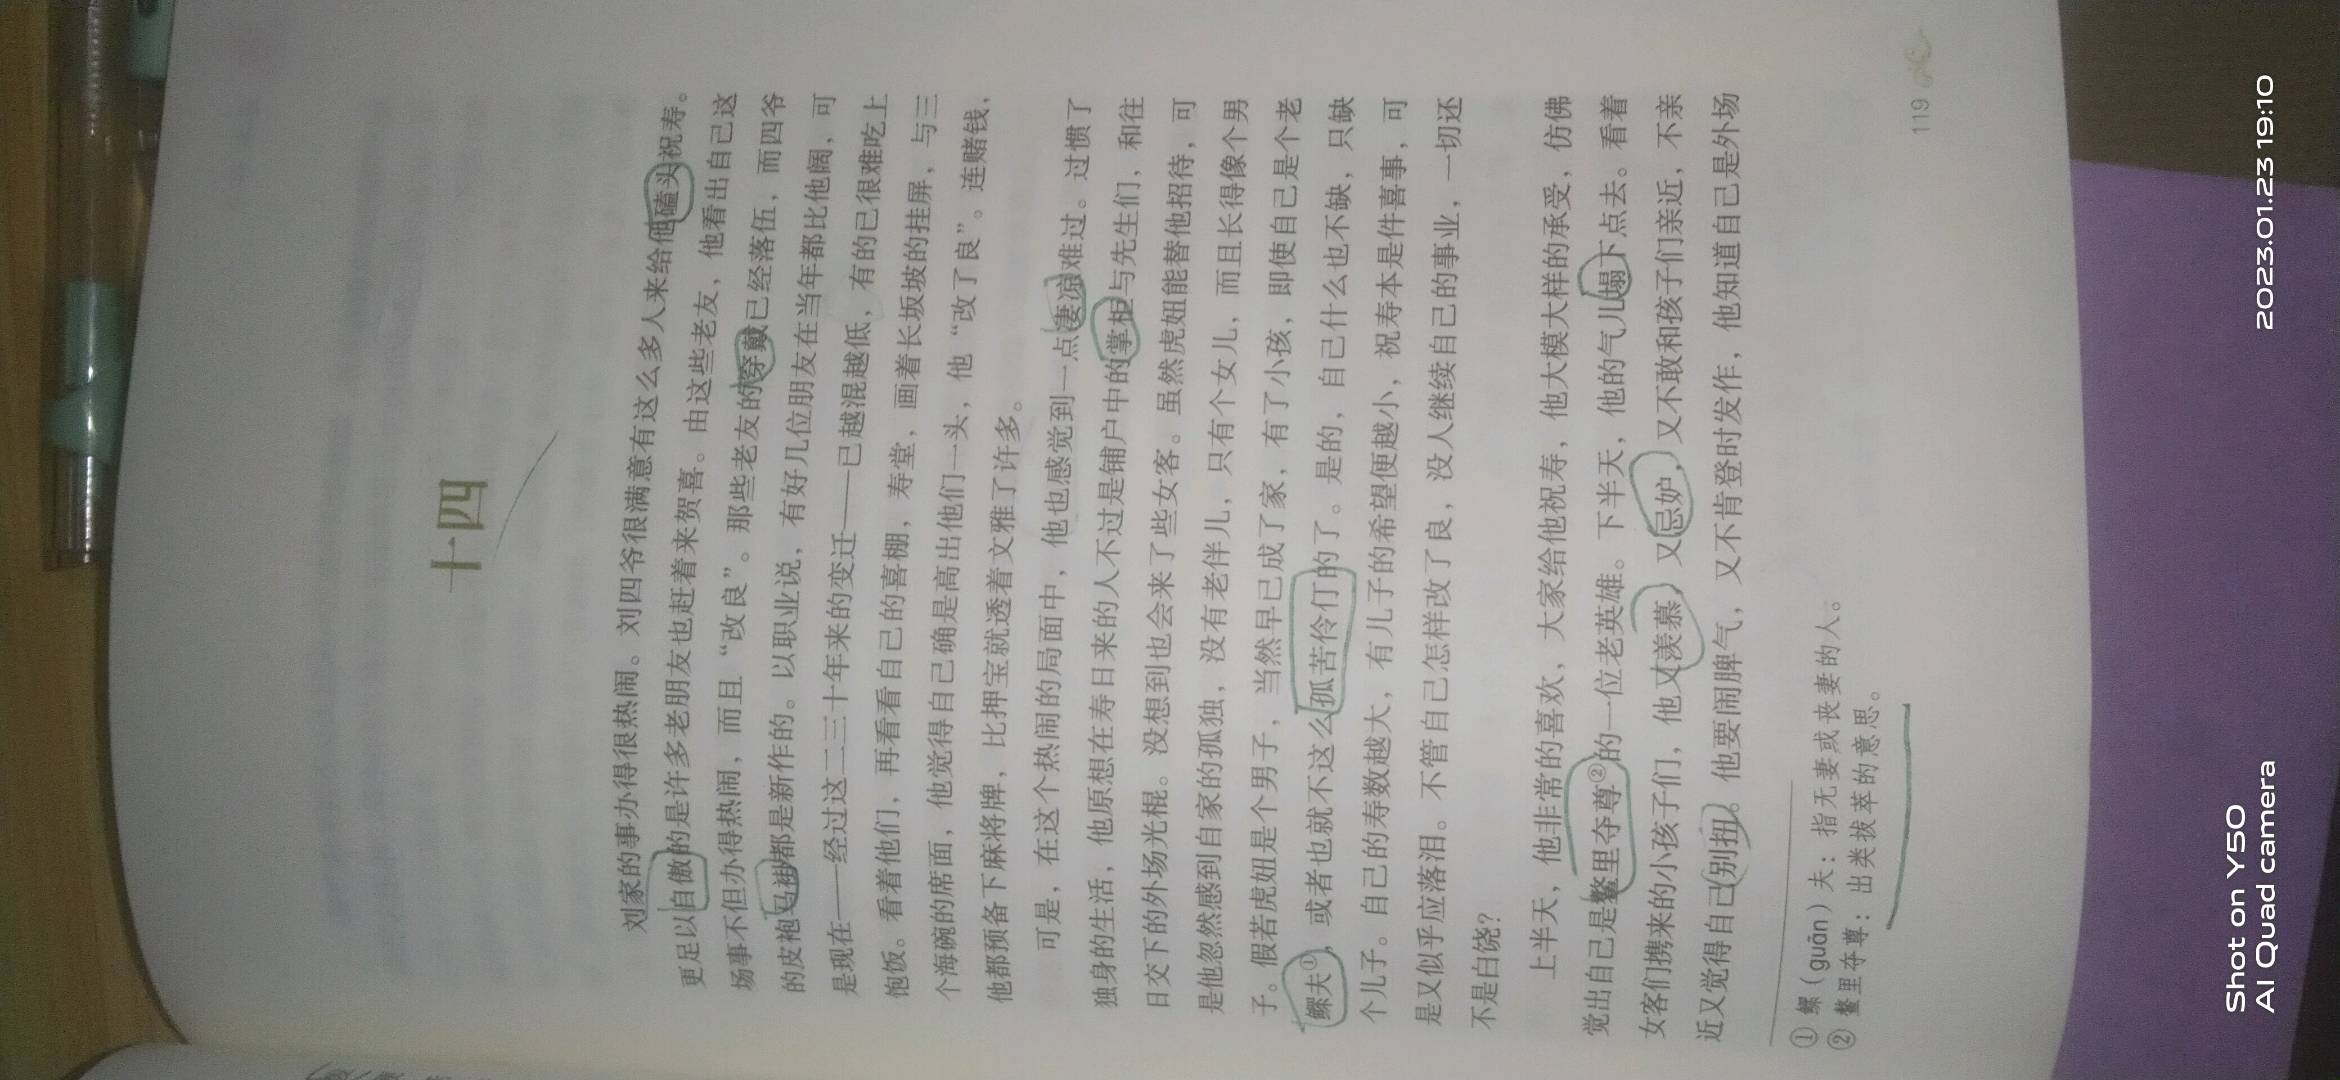 十四
刘家的事办得很热闹。刘四爷很满意有这么多人来给他磕头祝寿。
更足以自傲的是许多老朋友也赶着来贺喜。由这些老友，他看出自己这
场事不但办得热闹，而且“改良”。那些老友的穿戴已经落伍，而四爷
的皮袍马褂都是新作的。以职业说，有好几位朋友在当年都比他阔，可
是现在——经过这二三十年来的变迁——已越混越低，有的已很难吃上
饱饭。看着他们，再看看自己的喜棚，寿堂，画着长坂坡的挂屏，与三
个海碗的席面，他觉得自己确是高出他们一头，他“改了良”。连赌钱，
他都预备下麻将牌，比押宝就透着文雅了许多。
可是，在这个热闹的局面中，他也感觉到一点凄凉难过。过惯了
独身的生活，他原想在寿日来的人不过是铺户中的掌柜与先生们，和往
日交下的外场光棍。没想到也会来了些女客。虽然虎妞能替他招待，可
是他忽然感到自家的孤独，没有老伴儿，只有个女儿，而且长得像个男
子。假若虎妞是个男子，当然早已成了家，有了小孩，即使自己是个老
鳏夫①，或者也就不这么孤苦伶仃的了。是的，自己什么也不缺，只缺
个儿子。自己的寿数越大，有儿子的希望便越小，祝寿本是件喜事，可
是又似乎应落泪。不管自己怎样改了良，没人继续自己的事业，一切还
不是白饶？
上半天，他非常的喜欢，大家给他祝寿，他大模大样的承受，仿佛
觉出自己是鳌里夺尊②的一位老英雄。下半天，他的气儿塌下点去。看着
女客们携来的小孩子们，他又羡慕，又忌妒，又不敢和孩子们亲近，不亲
近又觉得自己别扭。他要闹脾气，又不肯登时发作，他知道自己是外场
① 鳏（guān）夫：指无妻或丧妻的人。
② 鳌里夺尊：出类拔萃的意思。
119
Shot on Y50
AI Quad camera
2023.01.23 19:10